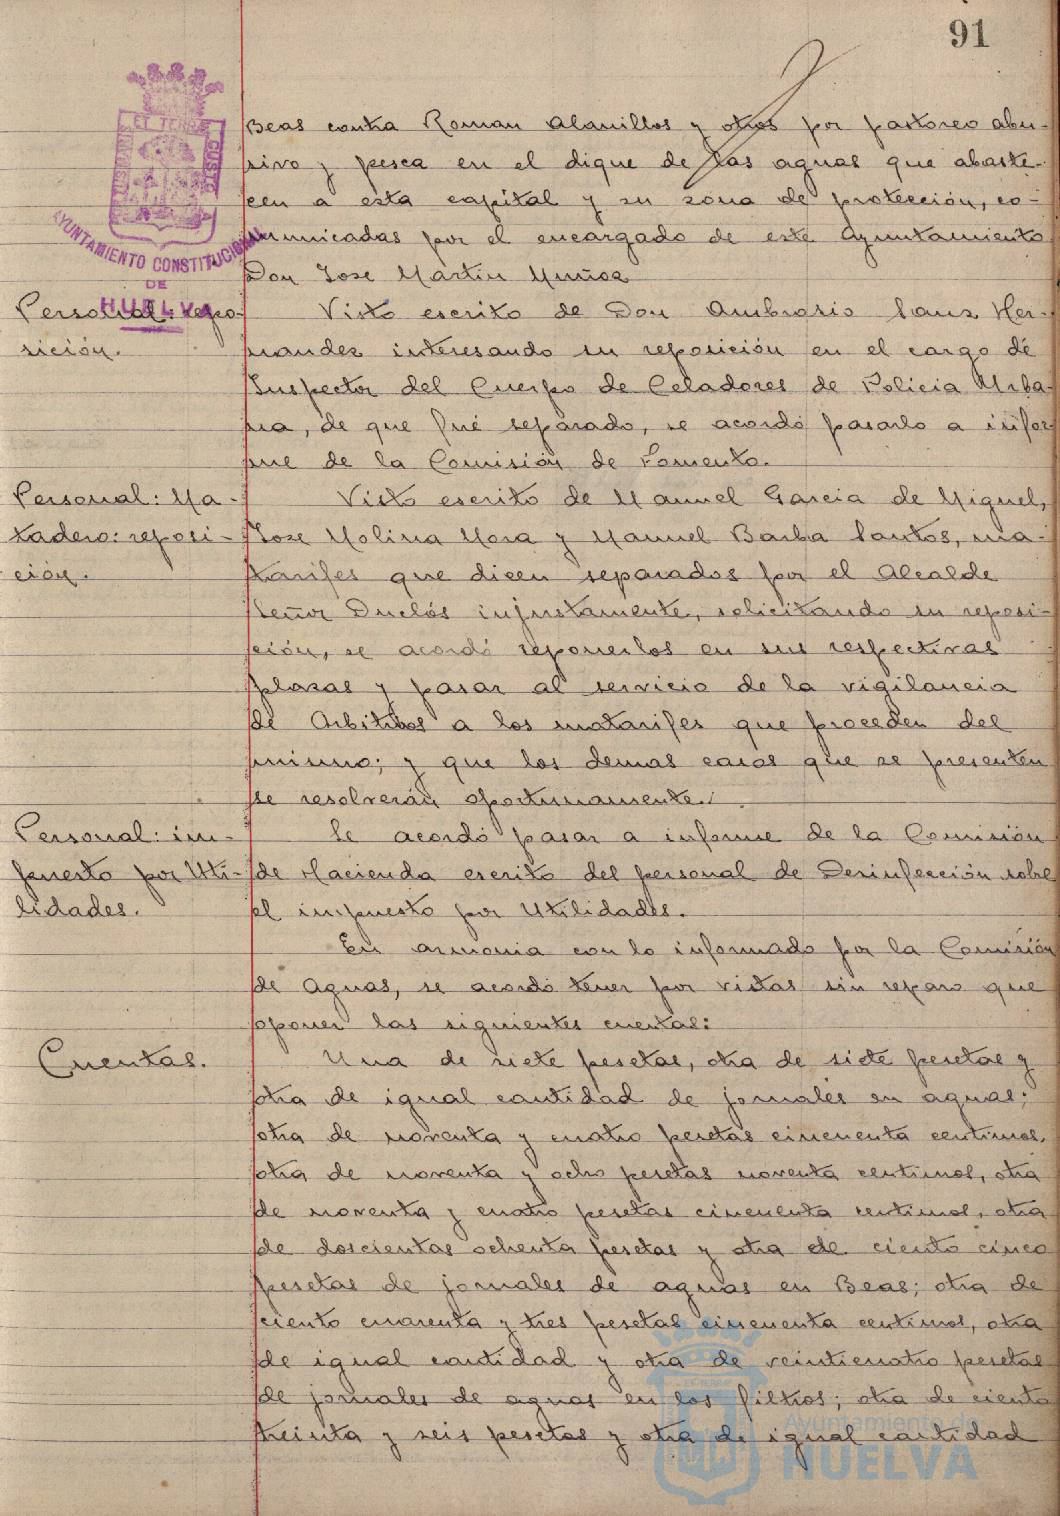 91
Beas contra Roman Alanillos y otros por pastoreo abu-
sivo y pesca en el dique de las aguas que abaste-
cen a esta capital y su zona de protección, co-
municadas por el encargado de este Ayuntamiento
Don Jose Martin Muñoz
PORTUS MARIS ET TERRAE CUSTODIA
AYUNTAMIENTO CONSTITUCIONAL
DE
HUELVA
Personal: repo-
sición.
Visto escrito de Don Ambrosio Sanz Her-
nandez interesando su reposición en el cargo de
Inspector del Cuerpo de Celadores de Policia Urba-
na, de que fué separado, se acordó pasarlo a infor-
me de la Comisión de Fomento.
Personal: Ma-
tadero: reposi-
ción.
Visto escrito de Manuel Garcia de Miguel,
Jose Molina Mora y Manuel Barba Santos, ma-
tarifes que dicen separados por el Alcalde
Señor Duclós injustamente, solicitando su reposi-
ción, se acordó reponerlos en sus respectivas
plazas y pasar al servicio de la vigilancia
de Arbitrios a los matarifes que proceden del
mismo; y que los demas casos que se presenten
se resolverán oportunamente.
Personal: im-
puesto por Uti-
lidades.
Se acordó pasar a informe de la Comisión
de Hacienda escrito del personal de Desinfección sobre
el impuesto por Utilidades.
En armonia con lo informado por la Comisión
de Aguas, se acordó tener por vistas sin reparo que
oponer las siguientes cuentas:
Cuentas.
Una de siete pesetas, otra de siete pesetas y
otra de igual cantidad de jornales en aguas;
otra de noventa y cuatro pesetas cincuenta centimos,
otra de noventa y ocho pesetas noventa centimos, otra
de noventa y cuatro pesetas cincuenta centimos, otra
de doscientas ochenta pesetas y otra de ciento cinco
pesetas de jornales de aguas en Beas; otra de
ciento cuarenta y tres pesetas cincuenta centimos, otra
de igual cantidad y otra de veinticuatro pesetas
de jornales de aguas en los filtros; otra de ciento
treinta y seis pesetas y otra de igual cantidad
Ayuntamiento de
HUELVA